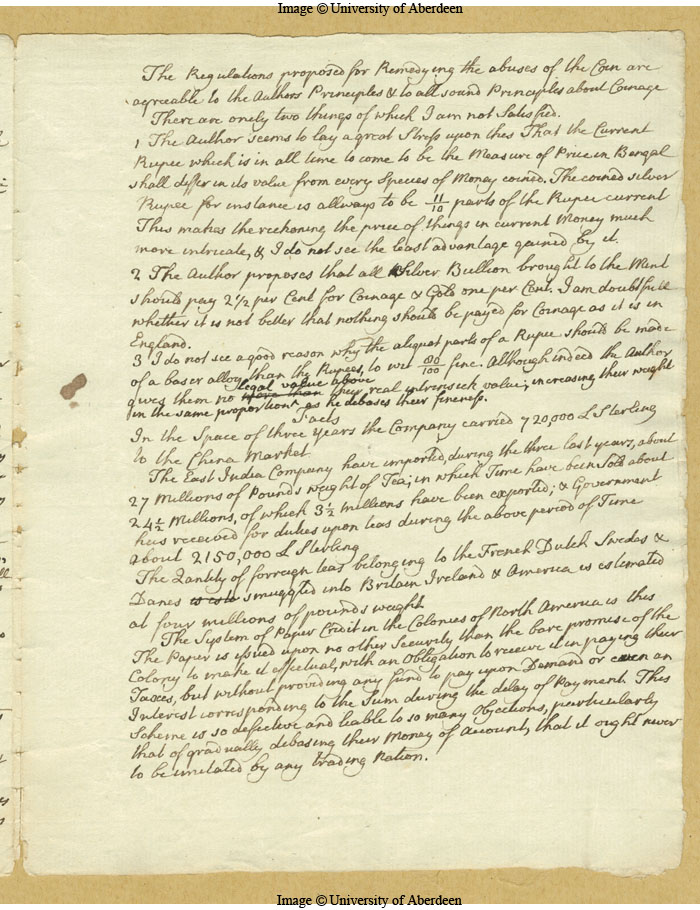 Image © University of Aberdeen
The Regulations proposed for Remedying the abuses of the Coin are
agreable to the Authors Principles & to all sound Principles about Coinage
There are onely two things of which I am not Satisfied.
1 The Author seems to lay a great Stress upon this That the Current
Rupee which is in all time to come to be the Measure of Price in Bengal
shall differ in its value from every Species of Money coined. The coined silver
Rupee for instance is allways to be 11/10 parts of the Rupee current
This makes the reckoning the price of things in current Money much
more intricate, & I do not see the least advantage gained by it.
2 The Author proposes that all Silver Bullion brought to the Mint
should pay 2 1/2 per Cent for Coinage & Gold one per Cent. I am doubtfull
whether it is not better that nothing should be payed for Coinage as it is in
England.
3 I do not see a good reason why the aliquat parts of a Rupee should be made
of a baser alloy than the Rupees, to wit 80/100 fine. Although indeed the Author
legal value above
gives them no more than their real intrinsick value; increasing their weight
in the same proportion as he debases their fineness.
Facts
In the Space of three Years the Company carried 720,000 L Sterling
to the China Market
The East India Company have imported, during the three last years, about
27 Millions of Pounds weight of Tea; in which Time have been Sold about
24 1/2 Millions, of which 3 1/2 millions have been exported; & Government
has received for duties upon teas during the above period of Time
about 2150,000 L Sterling
The Quantity of forreign teas belonging to the French Dutch Swedes &
Danes smuggled into Britain Ireland & America is estimated
at four millions of pounds weight
The System of Paper Credit in the Colonies of North America is this
The Paper is issued upon no other Security than the bare promise of the
Colony to make it effectual, with an Obligation to receive it in paying their
Taxes, but without providing any fund to pay upon Demand or even an
Interest corresponding to the Sum during the delay of Payment. This
Scheme is so defective and liable to so many Objections, particularly
that of gradually debasing their Money of account, that it ought never
to be imitated by any trading Nation.
Image © University of Aberdeen